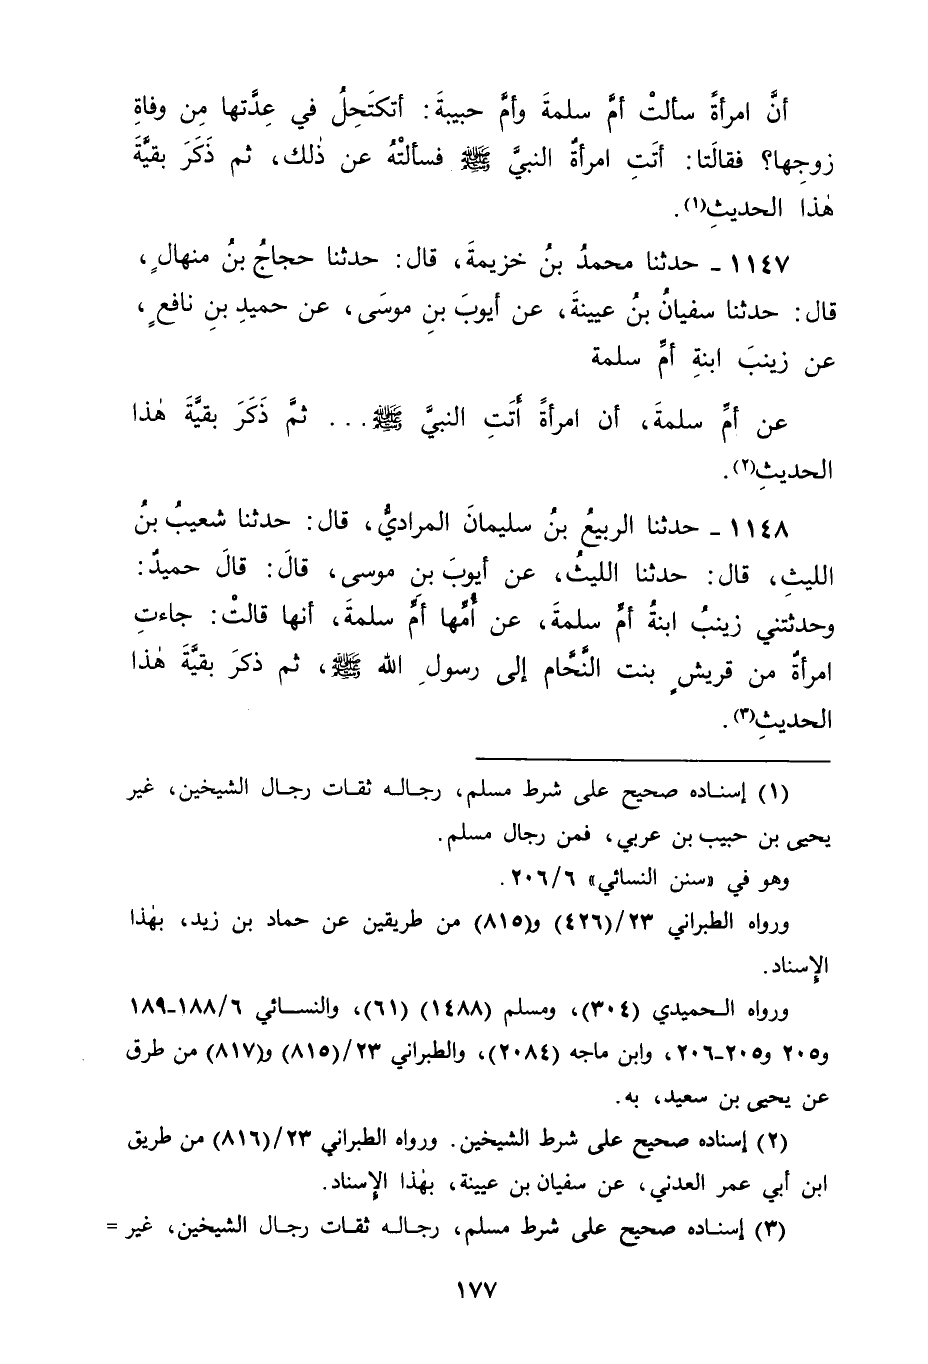 أنَّ امرأةً سألتْ أمَّ سلمةَ وأمَّ حبيبةَ: أتكتَحِلُ في عِدَّتها مِن وفاةِ
زوجِها؟ فقالَتا: أتَتِ امرأةٌ النبيَّ ﷺ فسألتْهُ عن ذٰلك، ثم ذَكَرَ بقيَّةَ
هٰذا الحديثِ(١).
١١٤٧ ـ حدثنا محمدُ بنُ خزيمةَ، قال: حدثنا حجاجُ بنُ منهالٍ،
قال: حدثنا سفيانُ بنُ عيينةَ، عن أيوبَ بنِ موسَى، عن حميدِ بنِ نافعٍ،
عن زينبَ ابنةِ أمِّ سلمة
عن أمِّ سلمةَ، أن امرأةً أَتَتِ النبيَّ ﷺ... ثمَّ ذَكَرَ بقيَّةَ هٰذا
الحديثِ(٢).
١١٤٨ ـ حدثنا الربيعُ بنُ سليمانَ المراديُّ، قال: حدثنا شعيبُ بنُ
الليثِ، قال: حدثنا الليثُ، عن أيوبَ بنِ موسى، قالَ: قالَ حميدٌ:
وحدثتني زينبُ ابنةُ أمِّ سلمةَ، عن أُمِّها أمِّ سلمةَ، أنها قالتْ: جاءتِ
امرأةٌ من قريشٍ بنت النَّحَّام إلى رسولِ الله ﷺ، ثم ذكرَ بقيَّةَ هٰذا
الحديثِ(٣).
(١) إسناده صحيح على شرط مسلم، رجاله ثقات رجال الشيخين، غير
يحيى بن حبيب بن عربي، فمن رجال مسلم.
وهو في «سنن النسائي» ٢٠٦/٦.
ورواه الطبراني ٢٣/(٤٢٦) و(٨١٥) من طريقين عن حماد بن زيد، بهٰذا
الإسناد.
ورواه الحميدي (٣٠٤)، ومسلم (١٤٨٨) (٦١)، والنسائي ١٨٨/٦ـ١٨٩
و٢٠٥ و٢٠٥ـ٢٠٦، وابن ماجه (٢٠٨٤)، والطبراني ٢٣/(٨١٥) و(٨١٧) من طرق
عن يحيى بن سعيد، به.
(٢) إسناده صحيح على شرط الشيخين. ورواه الطبراني ٢٣/(٨١٦) من طريق
ابن أبي عمر العدني، عن سفيان بن عيينة، بهٰذا الإسناد.
(٣) إسناده صحيح على شرط مسلم، رجاله ثقات رجال الشيخين، غير =
١٧٧